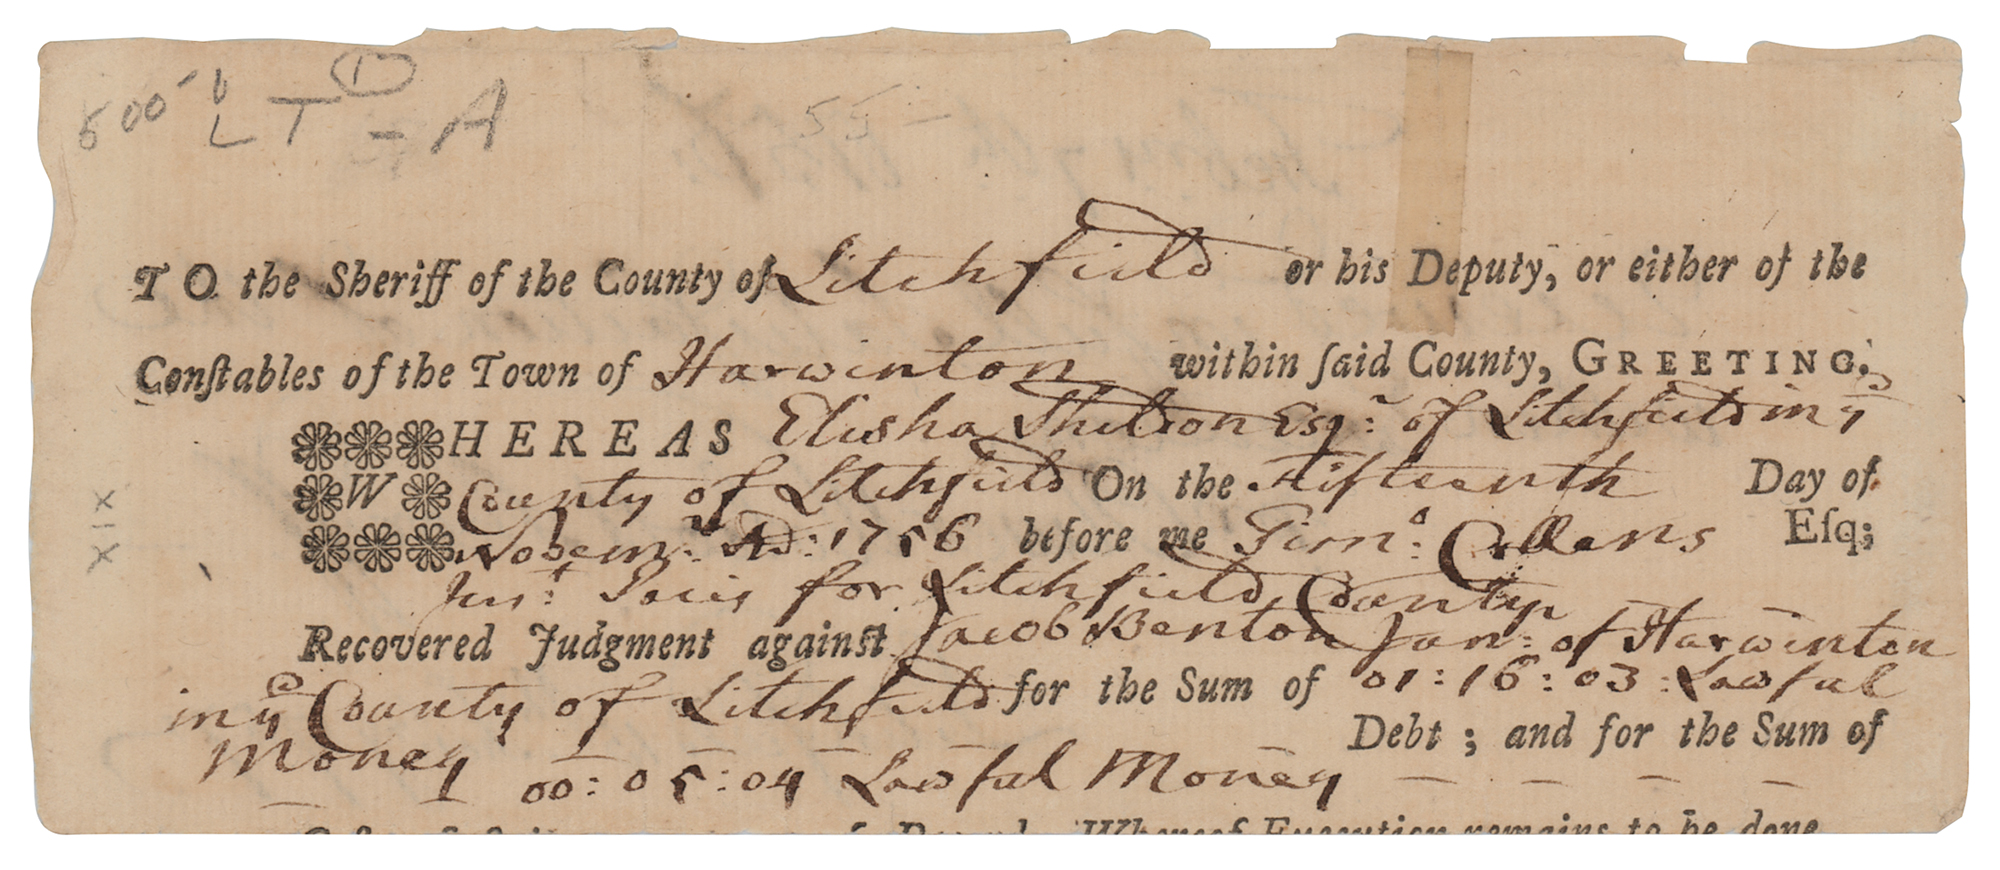 500- LT - A
1
55-
TO the Sheriff of the County of Litchfield or his Deputy, or either of the
Conſtables of the Town of Harwinton within ſaid County, GREETING.
WHEREAS Elisha Sheldon Esqr: of Litchfield in ye
County of Litchfield On the Fifteenth Day of
Novemr: AD: 1756 before me Timo: Collens Eſq;
Just: Pacis for Litchfield County
Recovered Judgment againſt Jacob Benton Junr: of Harwinton
in ye County of Litchfield for the Sum of 01:16:03: Lawful
Money Debt; and for the Sum of
00:05:04 Lawful Money
XIX
Whereof Execution remains to be done